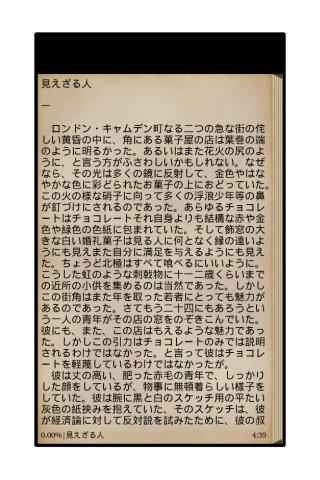 見えざる人
一
ロンドン・キャムデン町なる二つの急な街の侘
しい黄昏の中に、角にある菓子屋の店は葉巻の端
のように明るかった。あるいはまた花火の尻のよ
うに、と言う方がふさわしいかもしれない。なぜ
なら、その光は多くの鏡に反射して、金色やはな
やかな色に彩どられたお菓子の上におどっていた。
この火の様な硝子に向って多くの浮浪少年等の鼻
が釘づけにされるのであった。あらゆるチョコレ
ートはチョコレートそれ自身よりも結構な赤や金
色や緑色の色紙に包まれていた。そして飾窓の大
きな白い婚礼菓子は見る人に何となく縁の遠いよ
うにも見えまた自分に満足を与えるようにも見え
た。ちょうど北極はすべて喰べるにいいように。
こうした虹のような刺戟物に十一二歳くらいまで
の近所の小供を集めるのは当然であった。しかし
この街角はまた年を取った若者にとっても魅力が
あるのであった。さてもう二十四にもあろうとい
う一人の青年がその店の窓をのぞきこんでいた。
彼にも、また、この店はもえるような魅力であっ
た。しかしこの引力はチョコレートのみでは説明
されるわけではなかった。と言って彼はチョコレ
ートを軽蔑しているわけではなかったが。
彼は丈の高い、肥った赤毛の青年で、しっかり
した顔をしているが、物事に無頓着らしい様子を
していた。彼は腕に黒と白のスケッチ用の平たい
灰色の紙挟みを抱えていた、そのスケッチは、彼
が経済論に対して反対説を試みたために、彼の叔
0.00%|見えざる人 4:39